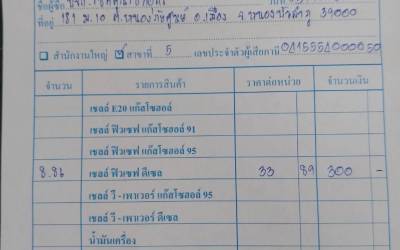 ชื่อผู้ซื้อ
ที่อยู่ 181 ม.10 ต.หนองภัยศูนย์ อ.เมือง จ.หนองบัวลำภู 39000
สำนักงานใหญ่ ✓ สาขาที่ 5 เลขประจำตัวผู้เสียภาษี
จำนวน รายการสินค้า ราคาต่อหน่วย จำนวนเงิน
เชลล์ E20 แก๊สโซฮอล์
เชลล์ ฟิวเซฟ แก๊สโซฮอล์ 91
เชลล์ ฟิวเซฟ แก๊สโซฮอล์ 95
8.86 เชลล์ ฟิวเซฟ ดีเซล 33 89 300 -
เชลล์ วี - เพาเวอร์ แก๊สโซฮอล์ 95
เชลล์ วี - เพาเวอร์ ดีเซล
น้ำมันเครื่อง